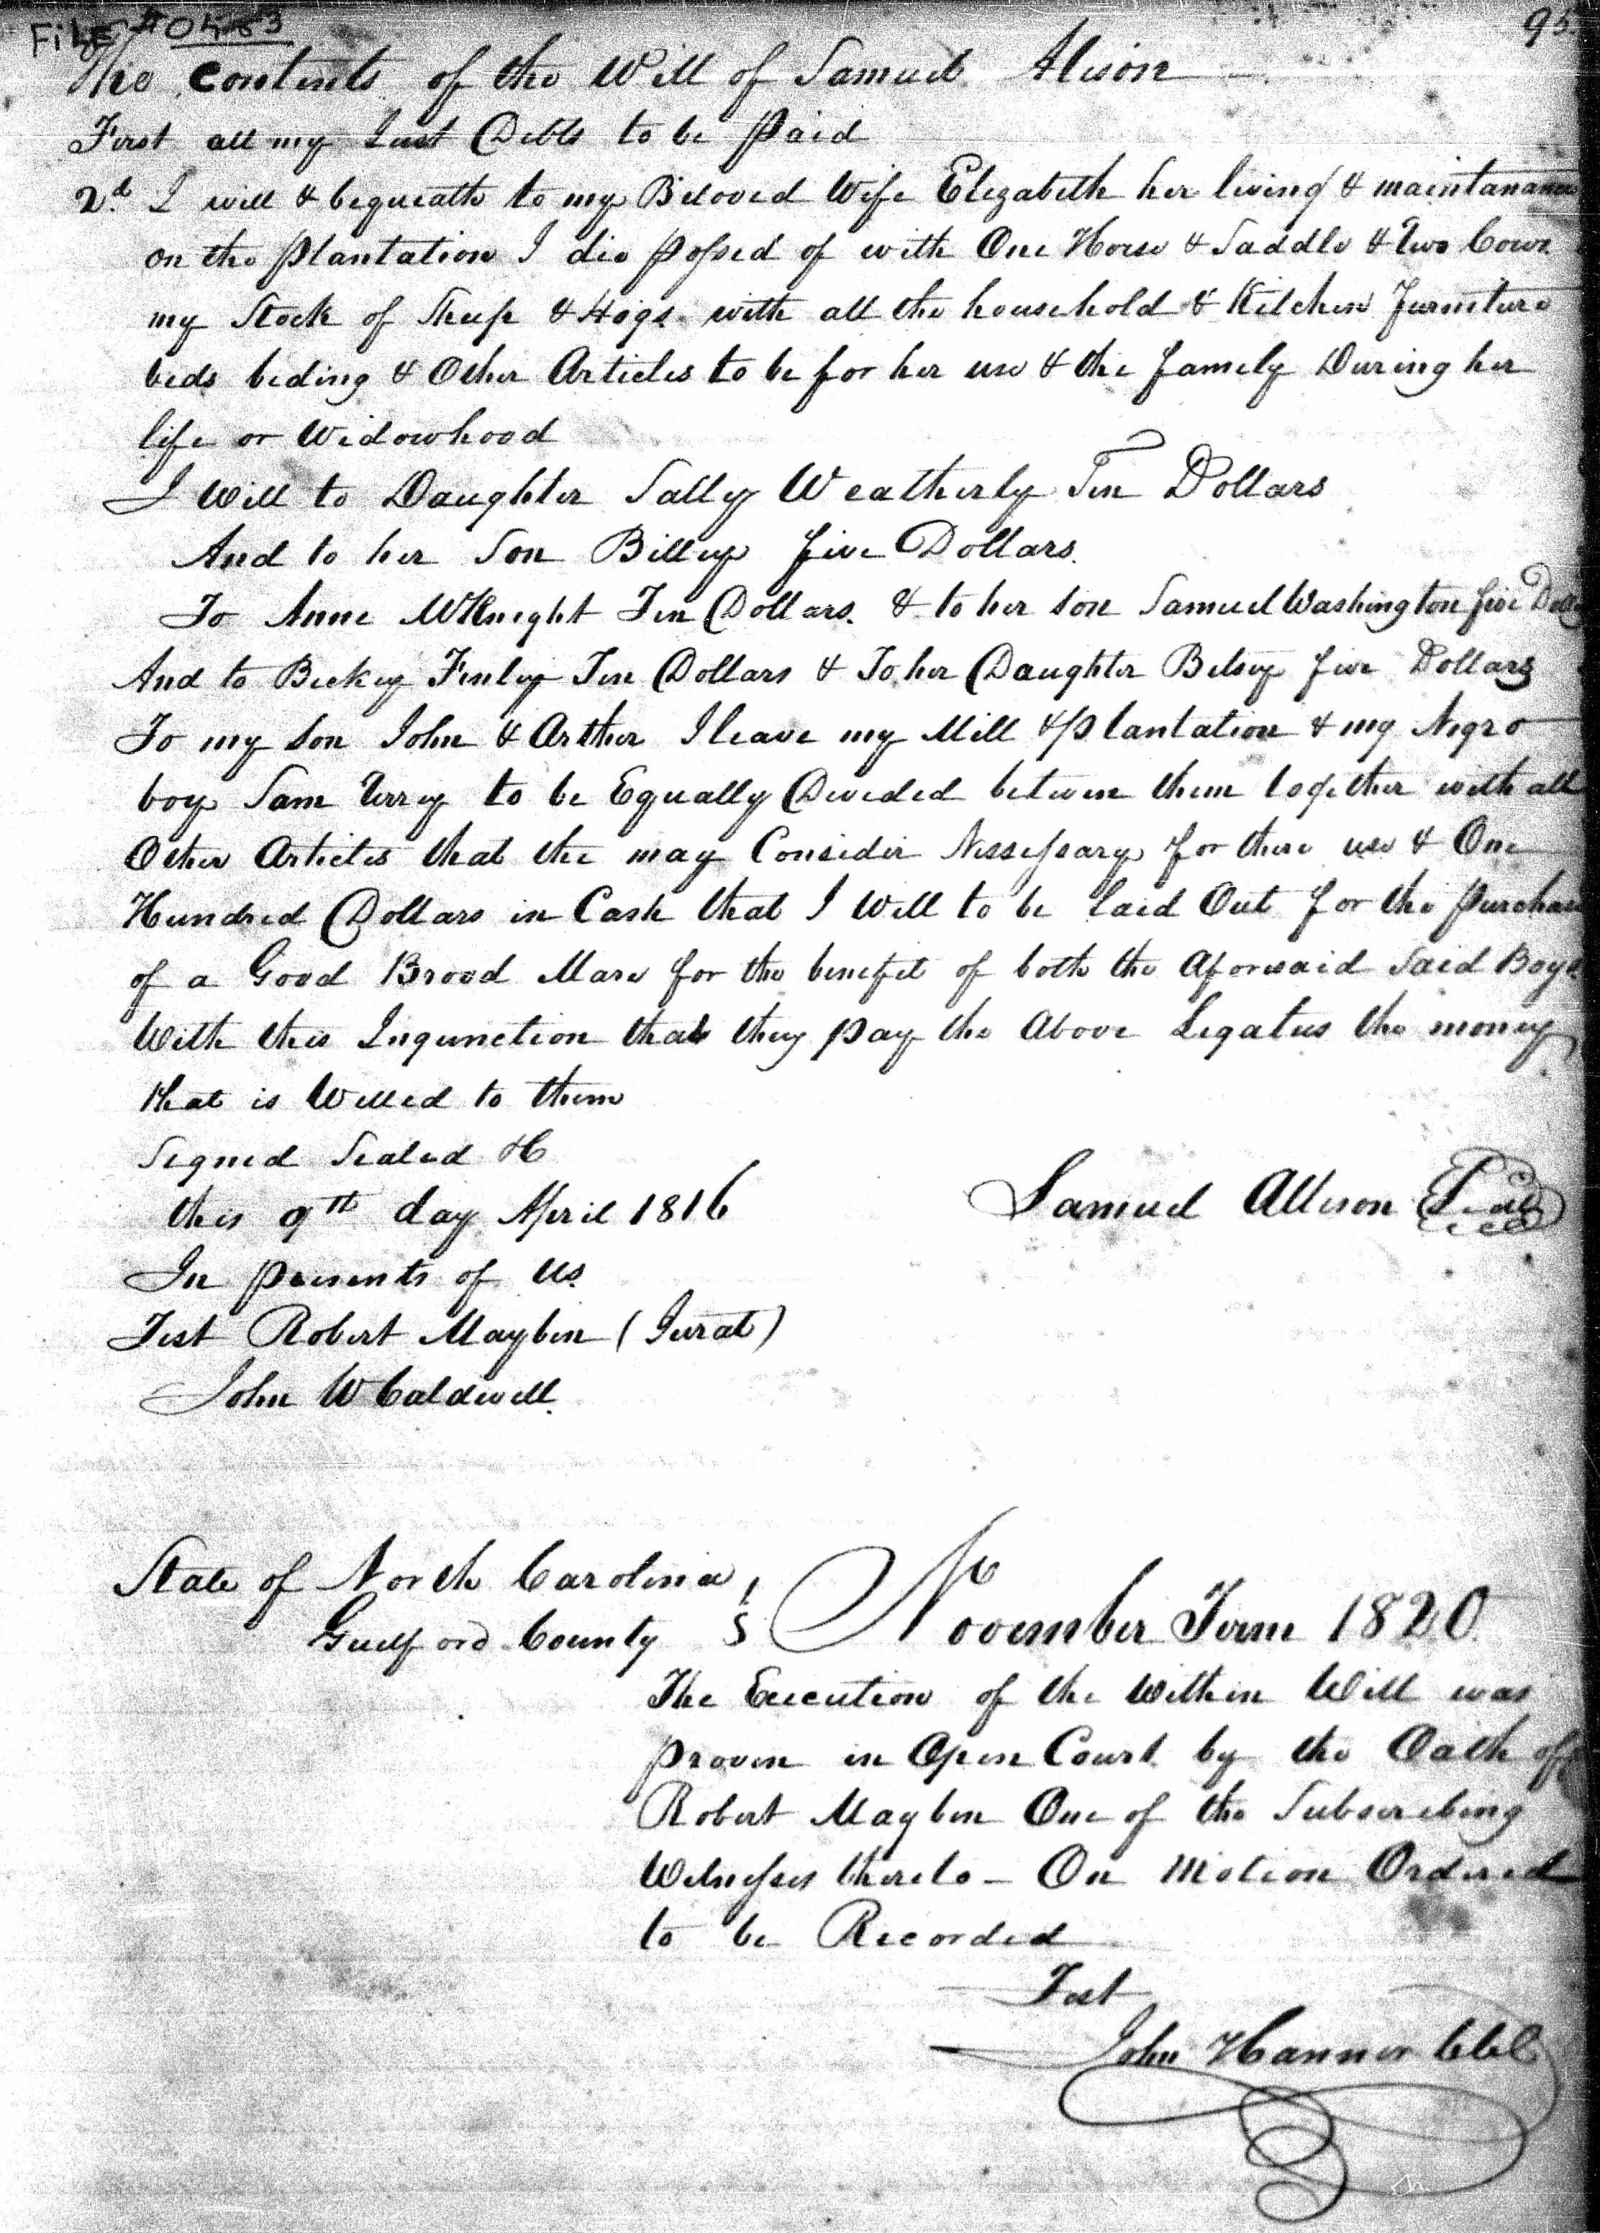 FiLE #0453
95
The Contents of the Will of Samuel Alison
First all my Just Debts to be Paid
2d. I will & bequeath to my Beloved Wife Elizabeth her living & maintanance
on the Plantation I die Possed of with One Horse & Saddle & Two Cows
my Stock of Sheep & Hogs with all the household & Kitchen Furniture
beds beding & Other Articles to be for her use & the family During her
life or Widowhood
I Will to Daughter Sally Weatherly Ten Dollars
And to her Son Billey five Dollars.
To Anne McKnight Ten Dollars. & to her son Samuel Washington five Dollars
And to Beckey Finley Ten Dollars & To her Daughter Betsey five Dollars
To my son John & Arther I leave my Mill & Plantation & my Negro
boy Sam to be Equally Devided between them together with all
Other Articles that the may Consider Nessessary for there use & One
Hundred Dollars in Cash that I Will to be laid Out for the Purchase
of a Good Brood Mare for the benefit of both the Aforesaid Said Boys
With this Injunction that they pay the Above Legatees the money
that is Willed to them
Signed Sealed &C
this 9th day April 1816
Samuel Allison Seal
In presents of Us
Test Robert Mayben (Jurat)
John W Caldwell.
State of North Carolina
Guilford County S November Term 1820.
The Execution of the Within Will was
proven in Open Court by the Oath of
Robert Mayben One of the Subscribing
Witnesses thereto - On Motion Ordered
to be Recorded
Test
John Hanner CCC